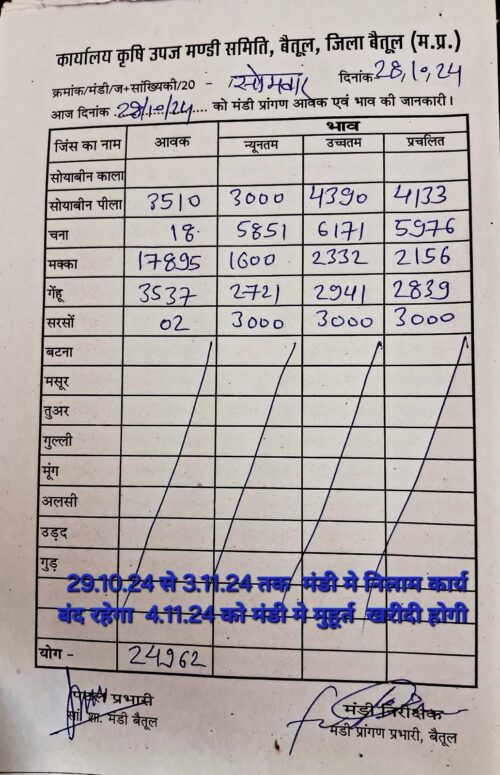 कार्यालय कृषि उपज मण्डी समिति, बैतूल, जिला बैतूल (म.प्र.)
क्रमांक/मंडी/ज+सांख्यिकी/20 - सोमवार दिनांक 28,10,24
आज दिनांक 28/10/24 को मंडी प्रांगण आवक एवं भाव की जानकारी।
जिंस का नाम आवक भाव
न्यूनतम उच्चतम प्रचलित
सोयाबीन काला
सोयाबीन पीला 3510 3000 4390 4133
चना 18 5851 6171 5976
मक्का 17895 1600 2332 2156
गेंहू 3537 2721 2941 2839
सरसों 02 3000 3000 3000
बटना
मसूर
तुअर
गुल्ली
मूंग
अलसी
उड़द
गुड़
29.10.24 से 3.11.24 तक मंडी मे निलाम कार्य
बंद रहेगा 4.11.24 को मंडी मे मुहूर्त खरीदी होगी
योग - 24962
प्रभारी मंडी निरीक्षक
सां. शा. मंडी बैतूल मंडी प्रांगण प्रभारी, बैतूल